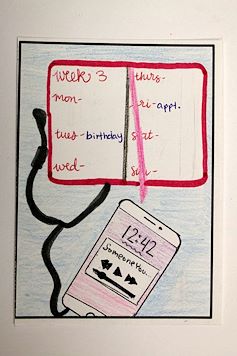 week 3
mon-
tues- birthday
wed-
thrs-
fri- appt.
sat-
sun-
12:42
Someone You...